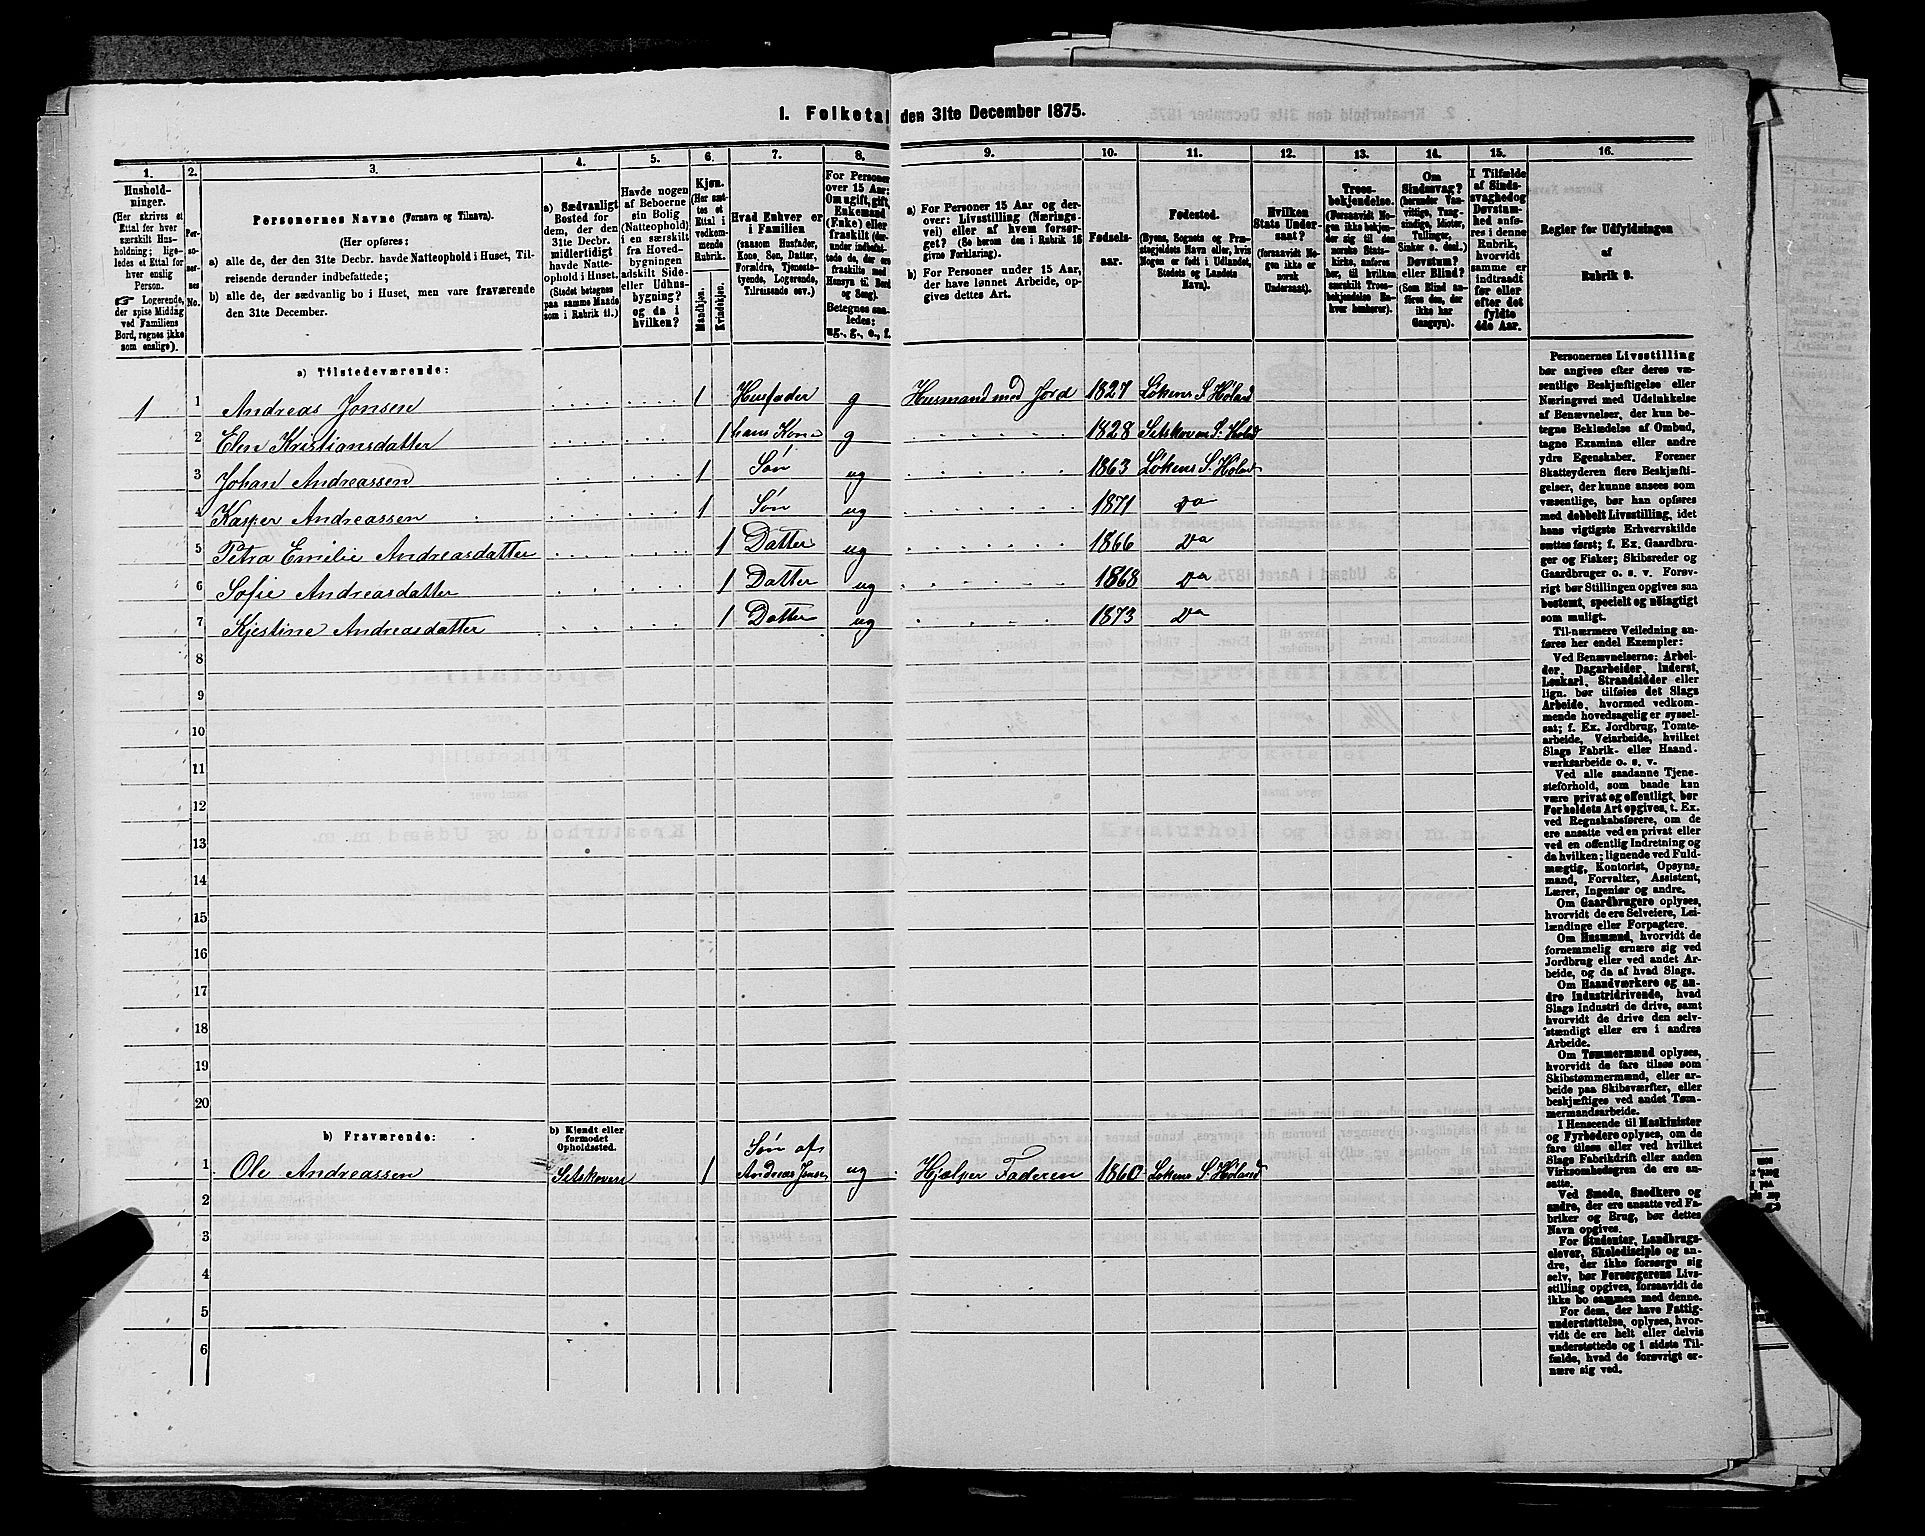 1. Folketal den 31te December 1875.
1. 2. 3. 4. 5. 6. 7. 8. 9. 10. 11. 12. 13. 14. 15. 16.
Hushold-
ninger.
(Her skrives et
Ettal for hver
særskilt Hus-
holdning; lige-
ledes et Ettal for
hver enslig
Person.
☞ Logerende,
der spise Middag
ved Familiens
Bord, regnes ikke
som enslige).
Per-
so-
ner-
nes
No.
Personernes Navne (Fornavn og Tilnavn).
(Her opføres:
a) alle de, der den 31te Decbr. havde Natteophold i Huset, Til-
reisende derunder indbefattede;
b) alle de, der sædvanlig bo i Huset, men vare fraværende
den 31te December.
a) Sædvanligt
Bosted for
dem, der den
31te Decbr.
midlertidigt
havde Natte-
ophold i Huset.
(Stedet betegnes
paa samme Maade
som i Rubrik 11.)
Havde nogen
af Beboerne
sin Bolig
(Natteophold)
i en særskilt
fra Hoved-
bygningen
adskilt Side-
eller Udhus-
bygning?
og da i
hvilken?
Kjøn.
(Her sæt-
tes et
Ettal i
vedkom-
mende
Rubrik.
Mandkjøn.
Kvindekjøn.
Hvad Enhver er
i Familien
(saasom Husfader,
Kone, Søn, Datter,
Forældre, Tjeneste-
tyende, Logerende,
Tilreisende osv.)
For Personer
over 15 Aar:
Om ugift, gift,
Enkemand
(Enke) eller
fraskilt (der-
under indbefat-
tede de, der ere
fraskilte med
Hensyn til Bord
og Seng).
Betegnes saa-
ledes:
ug., g., e., f.
a) For Personer 15 Aar og der-
over: Livsstilling (Nærings-
vei) eller af hvem forsør-
get? (Se herom den i Rubrik 16
givne Forklaring).
b) For Personer under 15 Aar,
der have lønnet Arbeide, op-
gives dettes Art.
Fødsels-
aar.
Fødested.
(Byens, Sognets og Præ-
stegjeldets Navn eller, hvis
Nogen er født i Udlandet,
Stedets og Landets
Navn).
Hvilken
Stats Under-
saat?
(forsaavidt No-
gen ikke er
norsk
Undersaat).
Troes-
bekjendelse.
(Forsaavidt No-
gen ikke bekjen-
der sig til den
norske Stats-
kirke, anføres
her, til hvilken
særskilt Troes-
bekjendelse En-
hver henhører).
Om
Sindssvag?
(herunder Van-
vittige, Tung-
sindige, Idioter,
Tullinger,
Sinker o. desl.)
Døvstum?
eller Blind?
(Som Blind an-
føres den, der
ikke har
Gangsyn).
I Tilfælde
af Sinds-
svaghed og
Døvstum-
hed anfø-
res i denne
Rubrik,
hvorvidt
samme er
indtraadt
før eller
efter det
fyldte
4de Aar.
Regler for Udfyldningen
af
Rubrik 9.
a) Tilstedeværende:
1 1 Andreas Jonsen 1 Husfader g Husmand med Jord 1827 Løkens S. Høland
2 Elen Kristiansdatter 1 hans Kone g 1828 Setskoven S. Høland
3 Johan Andreassen 1 Søn ug 1863 Løkens S. Høland
4 Kasper Andreassen 1 Søn ug 1871 Do
5 Petra Emilie Andreasdatter 1 Datter ug 1866 Do
6 Sofie Andreasdatter 1 Datter ug 1868 Do
7 Kjestine Andreasdatter 1 Datter ug 1873 Do
8
9
10
11
12
13
14
15
16
17
18
19
20
b) Fraværende:
b) Kjendt eller
formodet
Opholdssted.
1 Ole Andreassen Setskoven 1 Søn af Andreas Jonsen ug Hjælper Faderen 1860 Løkens S. Høland
2
3
4
5
6
Personernes Livsstilling
bør angives efter deres væ-
sentlige Beskjæftigelse eller
Næringsvei med Udelukkelse
af Benævnelser, der kun be-
tegne Beklædelse af Ombud,
tagne Examina eller andre
ydre Egenskaber. Forener
Skatteyderen flere Beskjæfti-
gelser, der kunne ansees som
væsentlige, bør han opføres
med dobbelt Livsstilling, idet
hans vigtigste Erhvervskilde
sættes først; f. Ex. Gaardbru-
ger og Fisker; Skibsreder og
Gaardbruger o. s. v. Forøv-
rigt bør Stillingen opgives saa
bestemt, specielt og nøiagtigt
som muligt.
Til nærmere Veiledning an-
føres her endel Exempler:
Ved Benævnelserne: Arbei-
der, Dagarbeider, Inderst,
Løskarl, Strandsidder eller
lign. bør tilføies det Slags
Arbeide, hvormed vedkom-
mende hovedsagelig er syssel-
sat; f. Ex. Jordbrug, Tomte-
arbeide, Veiarbeide, hvilket
Slags Fabrik- eller Haand-
værksarbeide o. s. v.
Ved alle saadanne Tjene-
steforhold, som baade kan
være privat og offentligt, bør
Forholdets Art opgives, t. Ex.
ved Regnskabsførere, om de
ere ansatte ved en privat eller
ved en offentlig Indretning og
da hvilken; lignende ved Fuld-
mægtig, Kontorist, Opsyns-
mand, Forvalter, Assistent,
Lærer, Ingeniør og andre.
Om Gaardbrugere oplyses,
hvorvidt de ere Selveiere, Lei-
lændinge eller Forpagtere.
Om Husmænd, hvorvidt de
fornemmelig ernære sig ved
Jordbrug eller ved andet Ar-
beide, og da af hvad Slags.
Om Haandværkere og an-
dre Industridrivende, hvad
Slags Industri de drive, samt
hvorvidt de drive den selv-
stændigt eller ere i andres
Arbeide.
Om Tømmermænd oplyses,
hvorvidt de fare tilsøs som
Skibstømmermænd, eller ar-
beide paa Skibsværfter, eller
beskjæftiges ved andet Tøm-
mermandsarbeide.
I Henseende til Maskinister
og Fyrbødere oplyses, om de
fare tilsøs eller ved hvilket
Slags Fabrikdrift eller anden
Virksomhedsgren de ere an-
satte.
Ved Smede, Snedkere og
andre, der ere ansatte ved Fa-
briker og Brug, bør dettes
Navn opgives.
For Studenter, Landbrugs-
elever, Skoledisciple og an-
dre, der ikke forsørge sig
selv, bør Forsørgerens Livs-
stilling opgives, forsaavidt de
ikke bo sammen med denne.
For dem, der have Fattig-
understøttelse, oplyses, hvor-
vidt de ere helt eller delvis
understøttede og i sidste Til-
fælde, hvad de forøvrigt er-
nære sig ved.